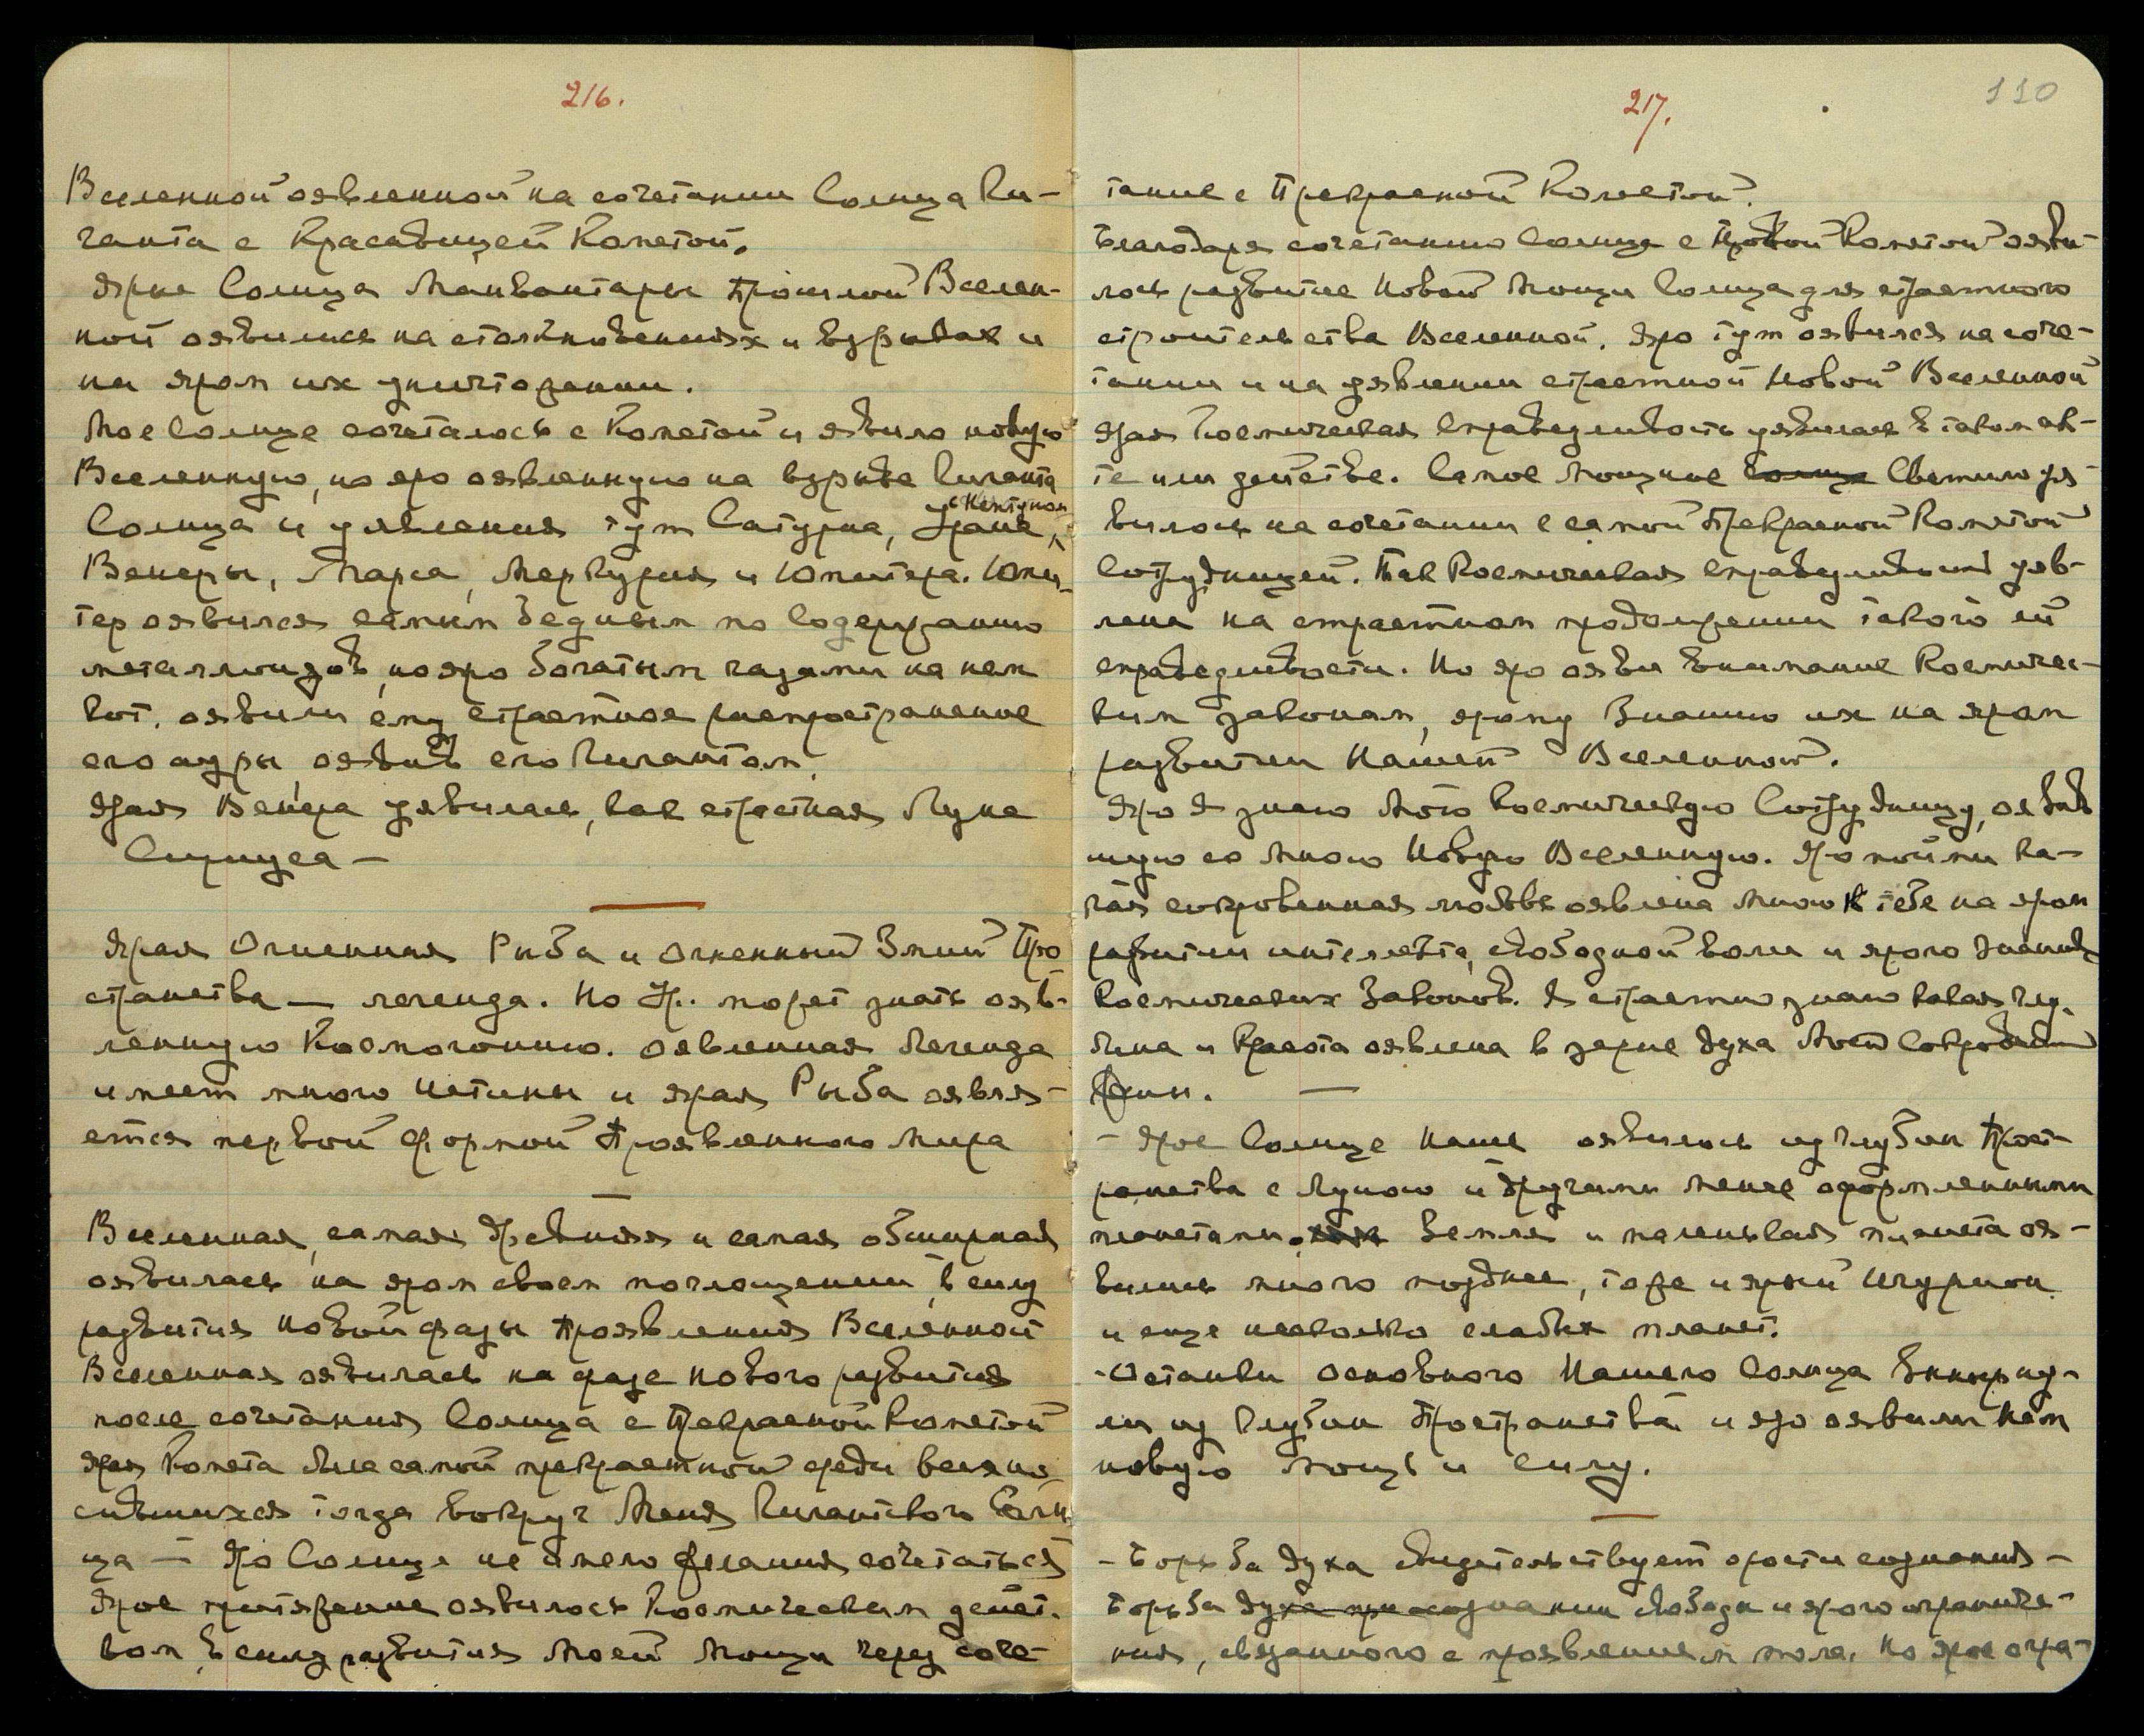 216.
Вселенной оявленной на сочетании Солнца Ги-
ганта с Красавицей Кометой.
Ярые Солнца Манвантары Прошлой Вселен-
ной оявились на столкновениях и взрывах и
на яром их уничтожении.
Мое Солнце сочеталось с Кометой и явило новую
Вселенную, но яро оявленную на взрыве Гиганта
Солнца и уявления тут Сатурна, Урана, с Нептуном
Венеры, Марса, Меркурия и Юпитера. Юпи-
тер оявился самым бедным по содержанию
металлоидов, но яро богатым газами на нем
кот. оявили ему страстное распространение
его ауры, оявив его Гигантом.
Ярая Венера уявилась, как страстная Луна
Сириуса —
Ярая Огненная Рыба и Огненный Змий Про
странства — легенда. Но Ур. может знать ояв-
ленную Космогонию. Оявленная Легенда
имеет много истины и ярая Рыба оявля-
ется первой формой Проявленного Мира
Вселенная, самая Древняя и самая обширная
оявилась на яром своем поглощении, в силу
развития новой фазы Проявления Вселенной
Вселенная оявилась на фазе нового развития
после сочетания Солнца с Прекрасной Кометой
Ярая Комета была самой прекрасной среди всех но-
сившихся тогда вокруг Меня Гигантского Солн
ца — Яро Солнце не имело желания сочетаться
Ярое притяжение оявилось Космическим дейст.
вом, в силу развития Моей Мощи через соче-
217.
110
тание с Прекрасной Кометой.
Благодаря сочетанию Солнца с Новой Кометой ояви-
лось развитие Новой Мощи Солнца для страстного
строительства Вселенной. Яро тут оявился на соче-
тании и на уявлении страстной Новой Вселенной
Ярая Космическая Справедливость уявилась в таком ак-
те или действе. Самое Мощное Солнце Светило уя-
вилось на сочетании с самой Прекрасной Кометой
Сотрудницей. Так Космическая справедливость уяв-
лена на страстном продолжении такой ей
справедливости. Но яроояви внимание Космичес-
ким законам, ярому Знанию их на яром
развитии Нашей Вселенной.
Яро Я знаю Мою Космическую Сотрудницу, оявив
шую со Мною Новую Вселенную. Яро пойми ка-
кая сокровенная любовь оявлена Мною к тебе на яром
развитии интеллекта, свободной воли и ярого знания
Космических Законов. Я страстно знаю какая глу-
бина и Красота оявлена в зерне духа Моей
— Ярое Солнце Наше оявилось из глубин Прост-
ранства с Луною и другими менее оформленными
планетами. Земля и маленькая планета оя-
вились много позднее, тоже и ярый
и еще несколько слабых планет.
- Остатки Основного Нашего Солнца вынырну-
ли из Глубин Пространства и яро оявили Нам
новую Мощь и Силу.
— Борьба духа свидетельствует о росте сознания —
Борьба духа при осознании свободы и ярого ограниче-
ния, связанного с проявлением тела. Но ярое огра-